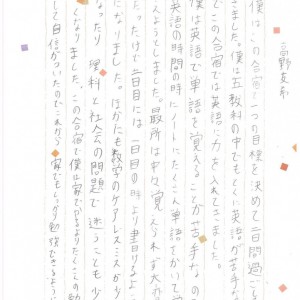 僕はこの合宿で一つの目標を決めて二日間過ご
きました。僕は五教科の中でもとくい英語が苦手な
でこの合宿では英語に力を入れてきました。
僕は英語で単語を覚えることが苦手なの
英語の時間の時にノートにたくさん単語をかいて覚
んようとしました。最所は中々覚えられず
たったけで二日目には一日目の時より書けるよ
になりました。ほかにも数学のケアレスミスが
なったり 理科と社会の問題で迷うことも少
くなりました。この合宿で僕は家でやるよりたくさんの勉
して自信がついたのでこれから 家でもしっかり勉強できるように